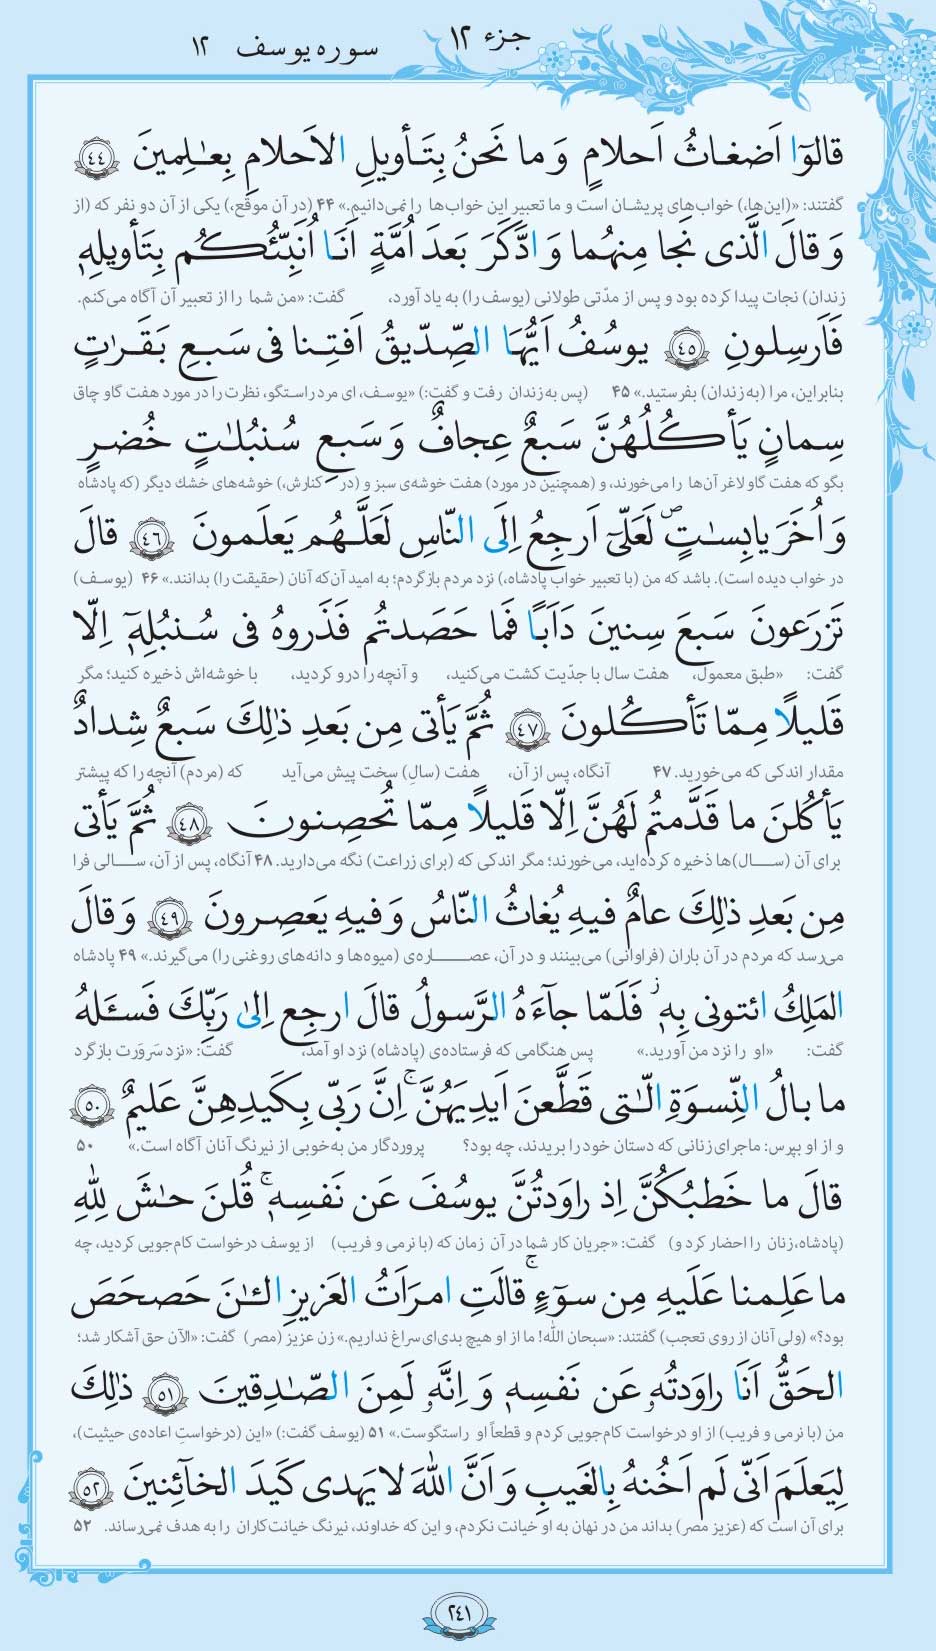 جزء ۱۲
سوره یوسف ۱۲
قالوٓا اَضغاثُ اَحلامٍ وَ ما نَحنُ بِتَأويلِ الاَحلامِ بِعٰلِمينَ ﴿٤٤﴾
گفتند: «(این‌ها،) خواب‌های پریشان است و ما تعبیر این خواب‌ها را نمی‌دانیم.» ۴۴ (در آن موقع،) یکی از آن دو نفر که (از
وَ قالَ الَّذى نَجا مِنهُما وَ ادَّكَرَ بَعدَ اُمَّةٍ اَنَا اُنَبِّئُكُم بِتَأويلِهٖ
زندان) نجات پیدا کرده بود و پس از مدّتی طولانی (یوسف را) به یاد آورد، گفت: «من شما را از تعبیر آن آگاه می‌کنم.
فَاَرسِلونِ ﴿٤٥﴾ يوسُفُ اَيُّهَا الصِّدّيقُ اَفتِنا فى سَبعِ بَقَرٰتٍ
بنابراین، مرا (به زندان) بفرستید.» ۴۵ (پس به زندان رفت و گفت:) «یوسف، ای مرد راستگو، نظرت را در مورد هفت گاو چاق
سِمانٍ يَأكُلُهُنَّ سَبعٌ عِجافٌ وَ سَبعِ سُنبُلٰتٍ خُضرٍ
بگو که هفت گاو لاغر آن‌ها را می‌خورند، و (همچنین در مورد) هفت خوشه‌ی سبز و (در کنارش،) خوشه‌های خشك دیگر (که پادشاه
وَ اُخَرَ يابِسٰتٍ ۙ لَعَلّىٓ اَرجِعُ اِلَى النّاسِ لَعَلَّهُم يَعلَمونَ ﴿٤٦﴾ قالَ
در خواب دیده است). باشد که من (با تعبیر خواب پادشاه،) نزد مردم بازگردم؛ به امید آن‌که آنان (حقیقت را) بدانند.» ۴۶ (یوسف)
تَزرَعونَ سَبعَ سِنينَ دَاَبًا فَما حَصَدتُم فَذَروهُ فى سُنبُلِهٖٓ اِلّا
گفت: «طبق معمول، هفت سال با جدّیت کشت می‌کنید، و آنچه را درو کردید، با خوشه‌اش ذخیره کنید؛ مگر
قَليلًا مِمّا تَأكُلونَ ﴿٤٧﴾ ثُمَّ يَأتى مِن بَعدِ ذٰلِكَ سَبعٌ شِدادٌ
مقدار اندکی که می‌خورید. ۴۷ آنگاه، پس از آن، هفت (سالِ) سخت پیش می‌آید که (مردم) آنچه را که پیشتر
يَأكُلنَ ما قَدَّمتُم لَهُنَّ اِلّا قَليلًا مِمّا تُحصِنونَ ﴿٤٨﴾ ثُمَّ يَأتى
برای آن (سال)ها ذخیره کرده‌اید، می‌خورند؛ مگر اندکی که (برای زراعت) نگه می‌دارید. ۴۸ آنگاه، پس از آن، سالی فرا
مِن بَعدِ ذٰلِكَ عامٌ فيهِ يُغاثُ النّاسُ وَ فيهِ يَعصِرونَ ﴿٤٩﴾ وَ قالَ
می‌رسد که مردم در آن باران (فراوانی) می‌بینند و در آن، عصاره‌ی (میوه‌ها و دانه‌های روغنی را) می‌گیرند.» ۴۹ پادشاه
المَلِكُ ائتونى بِهٖ ۚ فَلَمّا جآءَهُ الرَّسولُ قالَ ارجِع اِلىٰ رَبِّكَ فَسـَٔلهُ
گفت: «او را نزد من آورید.» پس هنگامی که فرستاده‌ی (پادشاه) نزد او آمد، گفت: «نزد سَروَرت بازگرد
ما بالُ النِّسوَةِ الّٰتى قَطَّعنَ اَيدِيَهُنَّ ۚ اِنَّ رَبّى بِكَيدِهِنَّ عَليمٌ ﴿٥٠﴾
و از او بپرس: ماجرای زنانی که دستان خود را بریدند، چه بود؟ پروردگار من به‌خوبی از نیرنگ آنان آگاه است.» ۵۰
قالَ ما خَطبُكُنَّ اِذ راوَدتُنَّ يوسُفَ عَن نَفسِهٖ ۚ قُلنَ حٰشَ لِلّٰهِ
(پادشاه، زنان را احضار کرد و) گفت: «جریان کار شما در آن زمان که (با نرمی و فریب) از یوسف درخواست کام‌جویی کردید، چه
ما عَلِمنا عَلَيهِ مِن سوٓءٍ ۚ قالَتِ امرَاَتُ العَزيزِ الـٰٔنَ حَصحَصَ
بود؟» (ولی آنان از روی تعجب) گفتند: «سبحان الله! ما از او هیچ بدی‌ای سراغ نداریم.» زن عزیز (مصر) گفت: «الآن حق آشکار شد؛
الحَقُّ اَنَا راوَدتُهٗ عَن نَفسِهٖ وَ اِنَّهٗ لَمِنَ الصّٰدِقينَ ﴿٥١﴾ ذٰلِكَ
من (با نرمی و فریب) از او درخواست کام‌جویی کردم و قطعاً او راستگوست.» ۵۱ (یوسف گفت:) «این (درخواستِ اعاده‌ی حیثیت)،
لِيَعلَمَ اَنّى لَم اَخُنهُ بِالغَيبِ وَ اَنَّ اللّٰهَ لا يَهدى كَيدَ الخآئِنينَ ﴿٥٢﴾
برای آن است که (عزیز مصر) بداند من در نهان به او خیانت نکردم، و این که خداوند، نیرنگ خیانت‌کاران را به هدف نمی‌رساند. ۵۲
۲۴۱